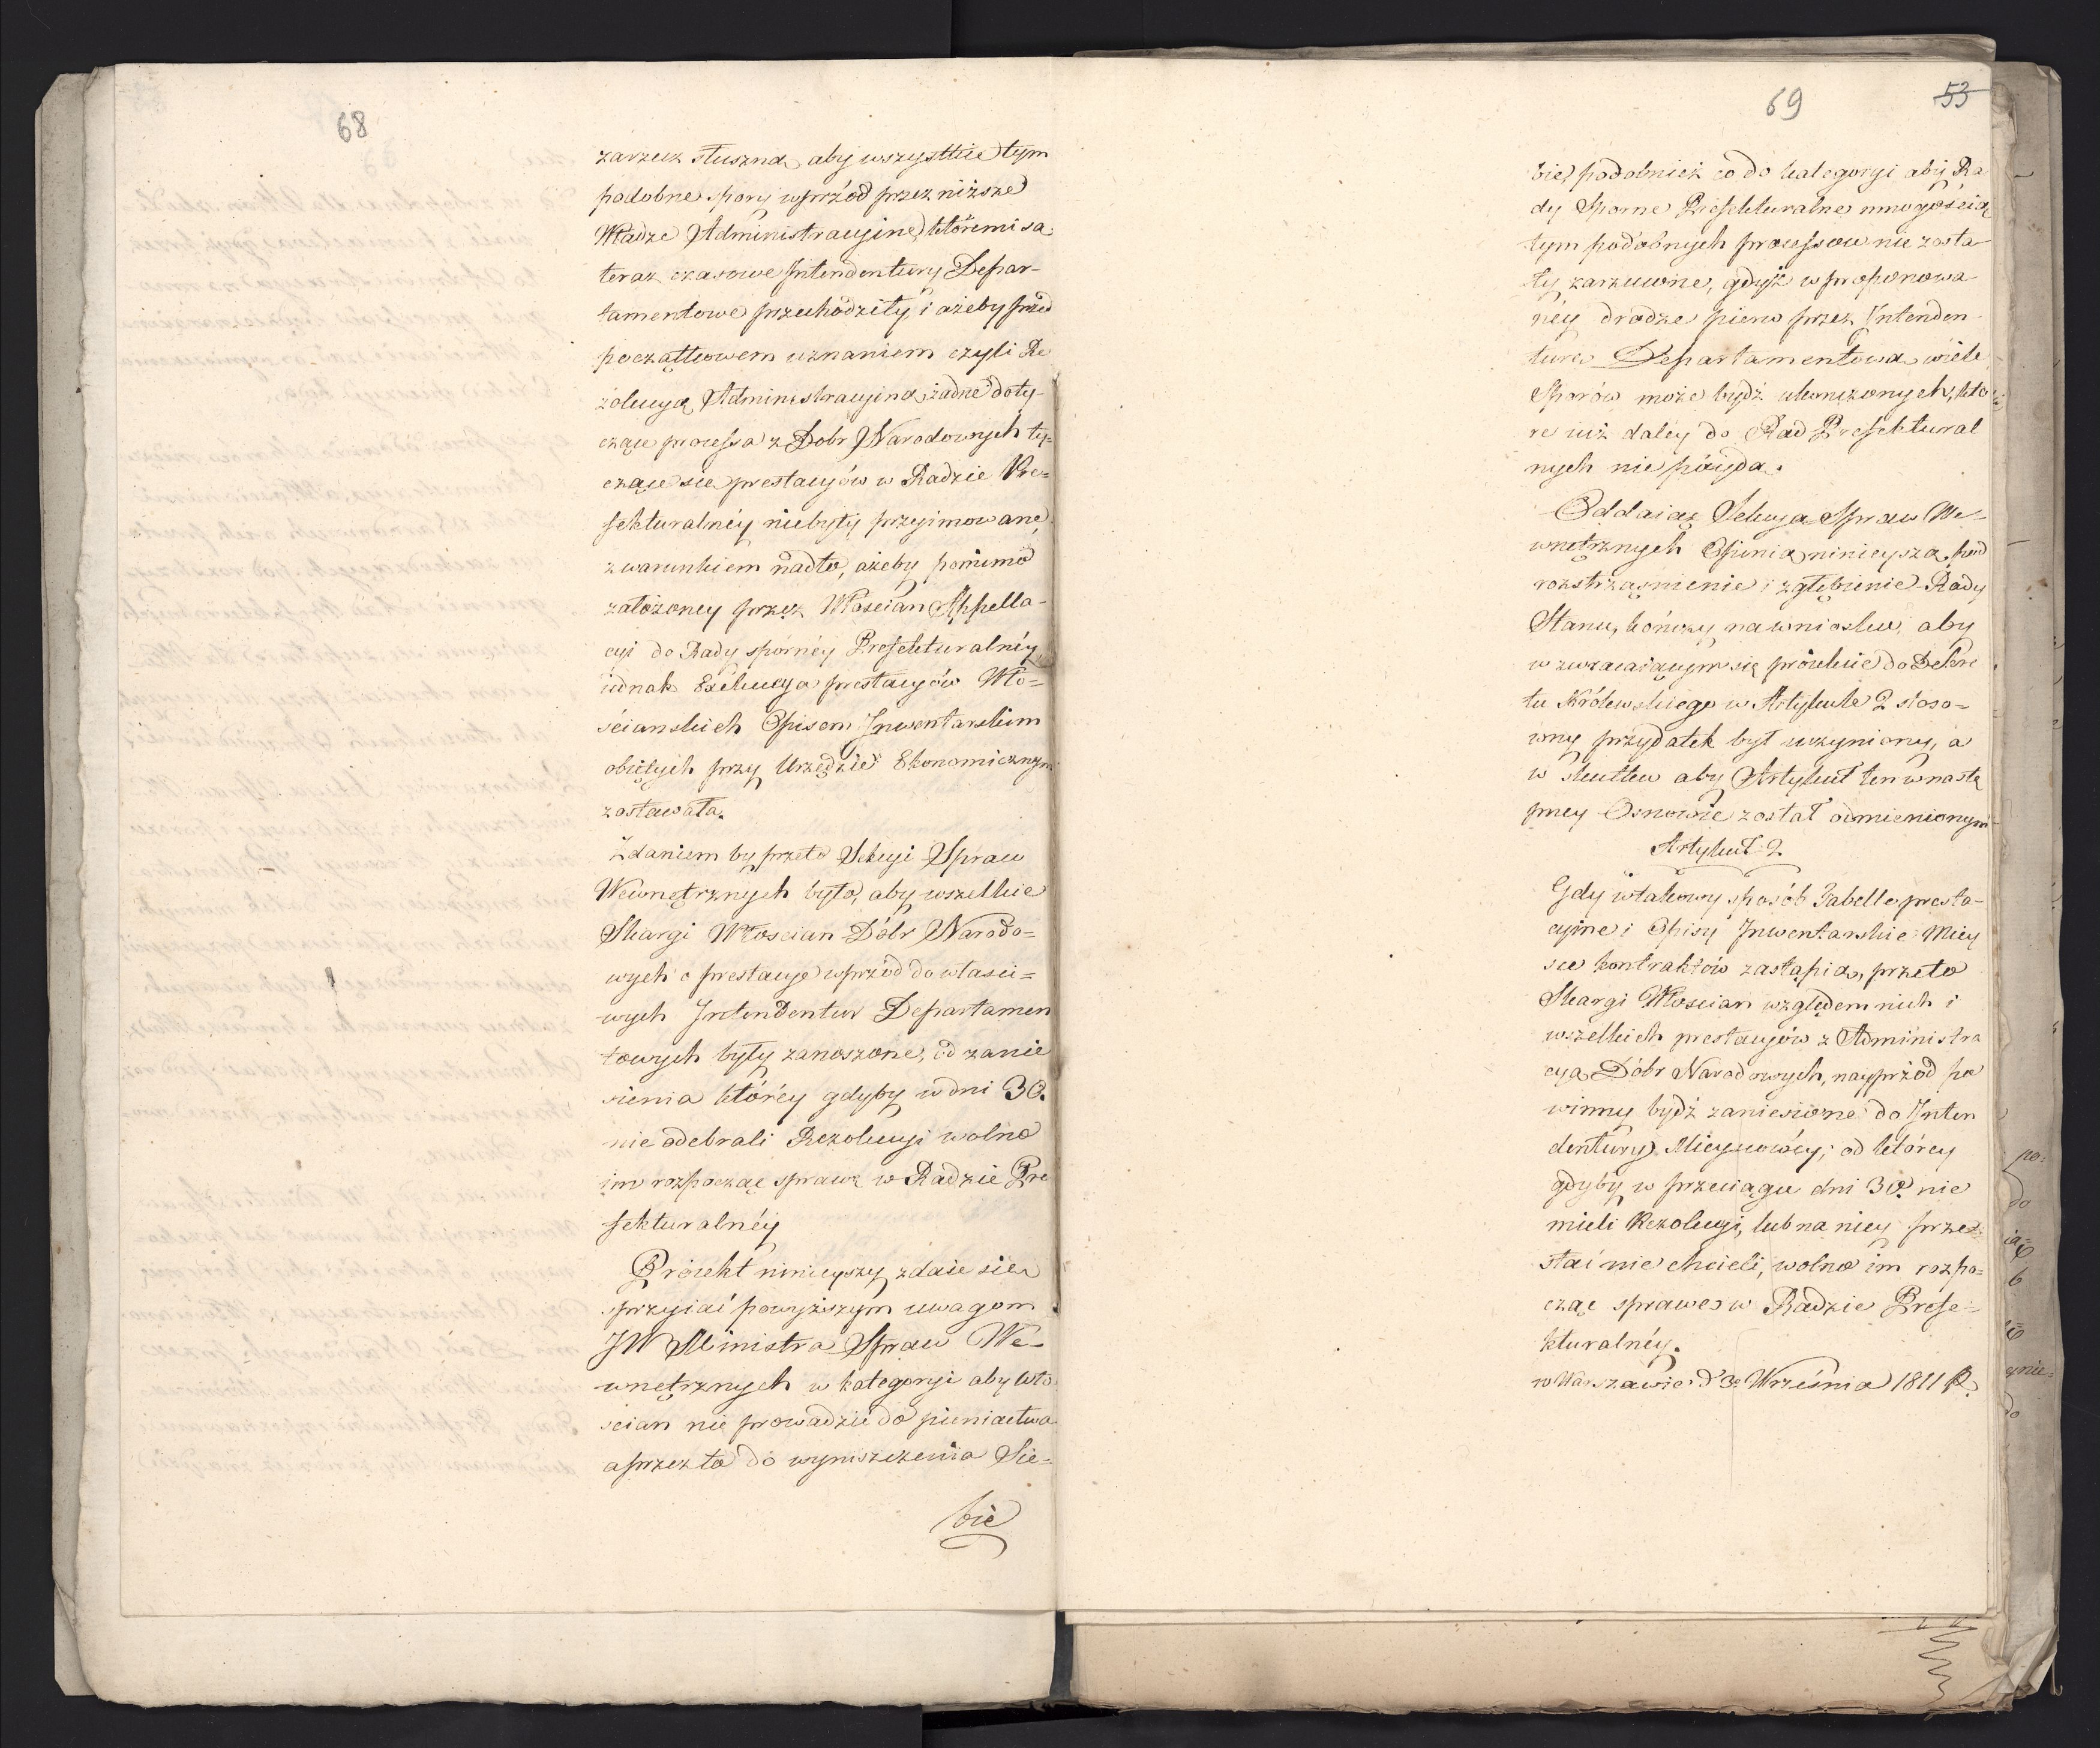 68
zarzuca słuszna, aby wszystkie tym
podobne spory wprzód przez niższe
Władze Administracyine, któremi są
teraz czasowe Intendentury Depar-
tamentowe przechodziły, i ażeby przed
początkowem uznaniem czyli Re
zolucyą Administracyiną, żadne doty-
czące processa z Dobr Narodowych ty-
czące się prestacyów w Radzie Pre-
fekturalnéy niebyły przyimowane,
z warunkiem nadto, ażeby pomimo
założoney przez Włoscian Appella-
cyi do Rady spornéy Prefekturalnéy,
iednak Exekucya prestacyów Wło=
ścianskich Opisem Inwentarskim
obiętych przy Urzędzie Ekonomicznym
zostawała.
Zdaniem by przeto Sekcyi Spraw
Wewnętrznych było, aby wszelkie
Skargi Włoscian Dóbr Narodo=
wych o prestacye wprzód do właści=
wych Intendentur Departamen
towych były zanoszone, od zanie
sienia któréy gdyby w dni 30.
nie odebrali Rezolucyi wolno
im rozpocząć sprawę w Radzie Pre
fekturalnéy
Proiekt ninieyszy zdaie się
sprzyiać powyższym uwagom
JW Ministra Spraw We-
wnętrznych w kategoryi aby Wło
scian nie prowadzić do pieniactwa
a przez to do wyniszczenia Sie=
bie
69
53
bie, podobnież co do kategoryi aby Ra
dy Sporne Prefekturalne mnogością
tym podobnych processow nie zosta
ły zarzucone, gdyż w proponowa
néy drodze pierw przez Intenden
turę Departamentową wiele
Sporów może bydź ukończonych, któ
re iuż daléy do Rad Prefektural
nych nie póydą.
Oddaiąc Sekcya Spraw We-
wnętrznych Opinią ninieyszą pod
rozstrząsnienie i zgłębienie Rady
Stanu, kończy na wniosku, aby
w zwracaiącym się proiekcie do Dekre
tu Królewskiego w Artykule 2 stoso=
wny przydatek był uczyniony, a
w skutku aby Artykuł ten w nastę
pney Osnowie został odmienionym
Artykuł 2.
Gdy w takowy sposób Tabelle presta-
cyine i Opisy Inwentarskie Miey
sce kontraktów zastąpią, przeto
Skargi Włoscian względem nich i
wszelkich prestacyów z Administra
cyą Dóbr Narodowych, nayprzód po
winny bydź zaniesione do Inten
dentury Mieyscowéy; od któréy
gdyby w przeciągu dni 30. nie
mieli Rezolucyi, lub na niey prze
stać nie chcieli, wolno im rozpo=
cząć sprawę w Radzie Prefe=
kturalnéy.
w Warszawie d. 3 Września 1811 R.